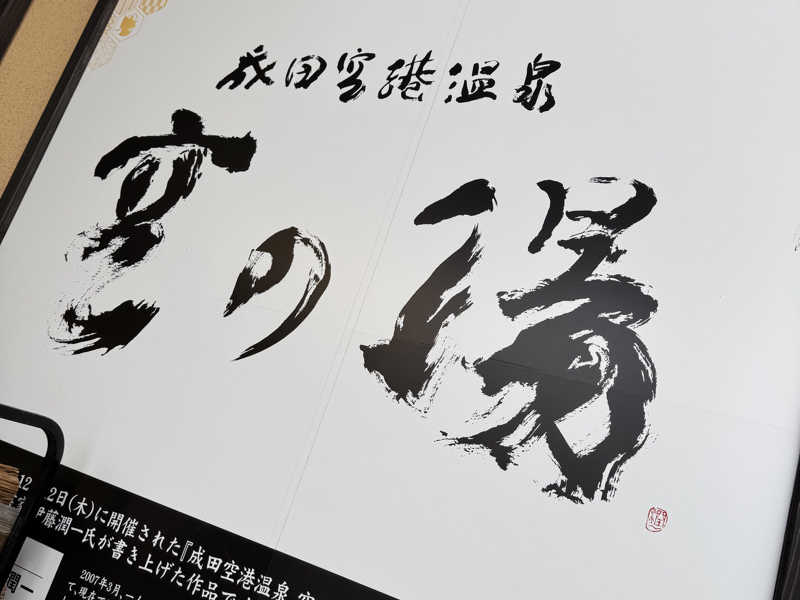 成田空港温泉
空の湯
12日(木)に開催された『成田空港温泉 空
伊藤潤一氏が書き上げた作品で
2007年3月、
て、現在
潤一